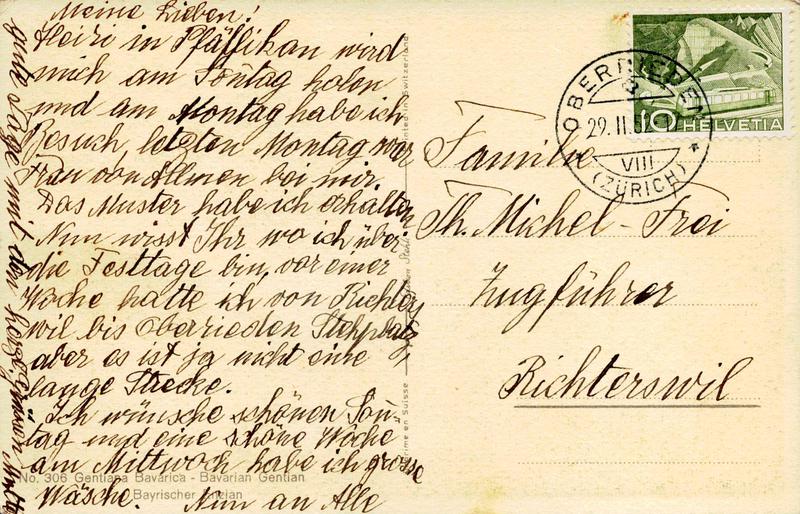 Meine Lieben!
Heiri in Pfäffikon wird
mich am Sontag holen
und am Montag habe ich
Besuch, letzten Montag war
Frau von Allmen bei mir.
Das Muster habe ich erhalten
Nun wisst Ihr wo ich über
die Festtage bin, vor einer
Woche hatte ich von Richters
wil bis Oberieden Stehplatz
aber es ist ja nicht eine
lange Strecke.
Ich wünsche schönen Son
tag und eine schöne Woche
am Mittwoch habe ich grosse
Wäsche. Nun an Alle
gute Tage mit den herzl.
No. 306 Gentiana Bavarica - Bavarian Gentian
Bayrischer Enzian
Printed in Switzerland
Imprimé en Suisse
HELVETIA
10
OBERRIEDEN
29. II. 52
VIII
(ZÜRICH)
Familie
Th. Michel - Frei
Zugführer
Richterswil